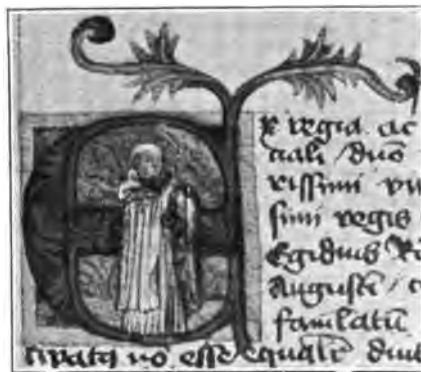 Ex regia ac
ciali / dno
rissimi vi
simi regis
Egidius Ro
Augusti / c
famulatū
cipatꝰ nō esse equalit̄ diut